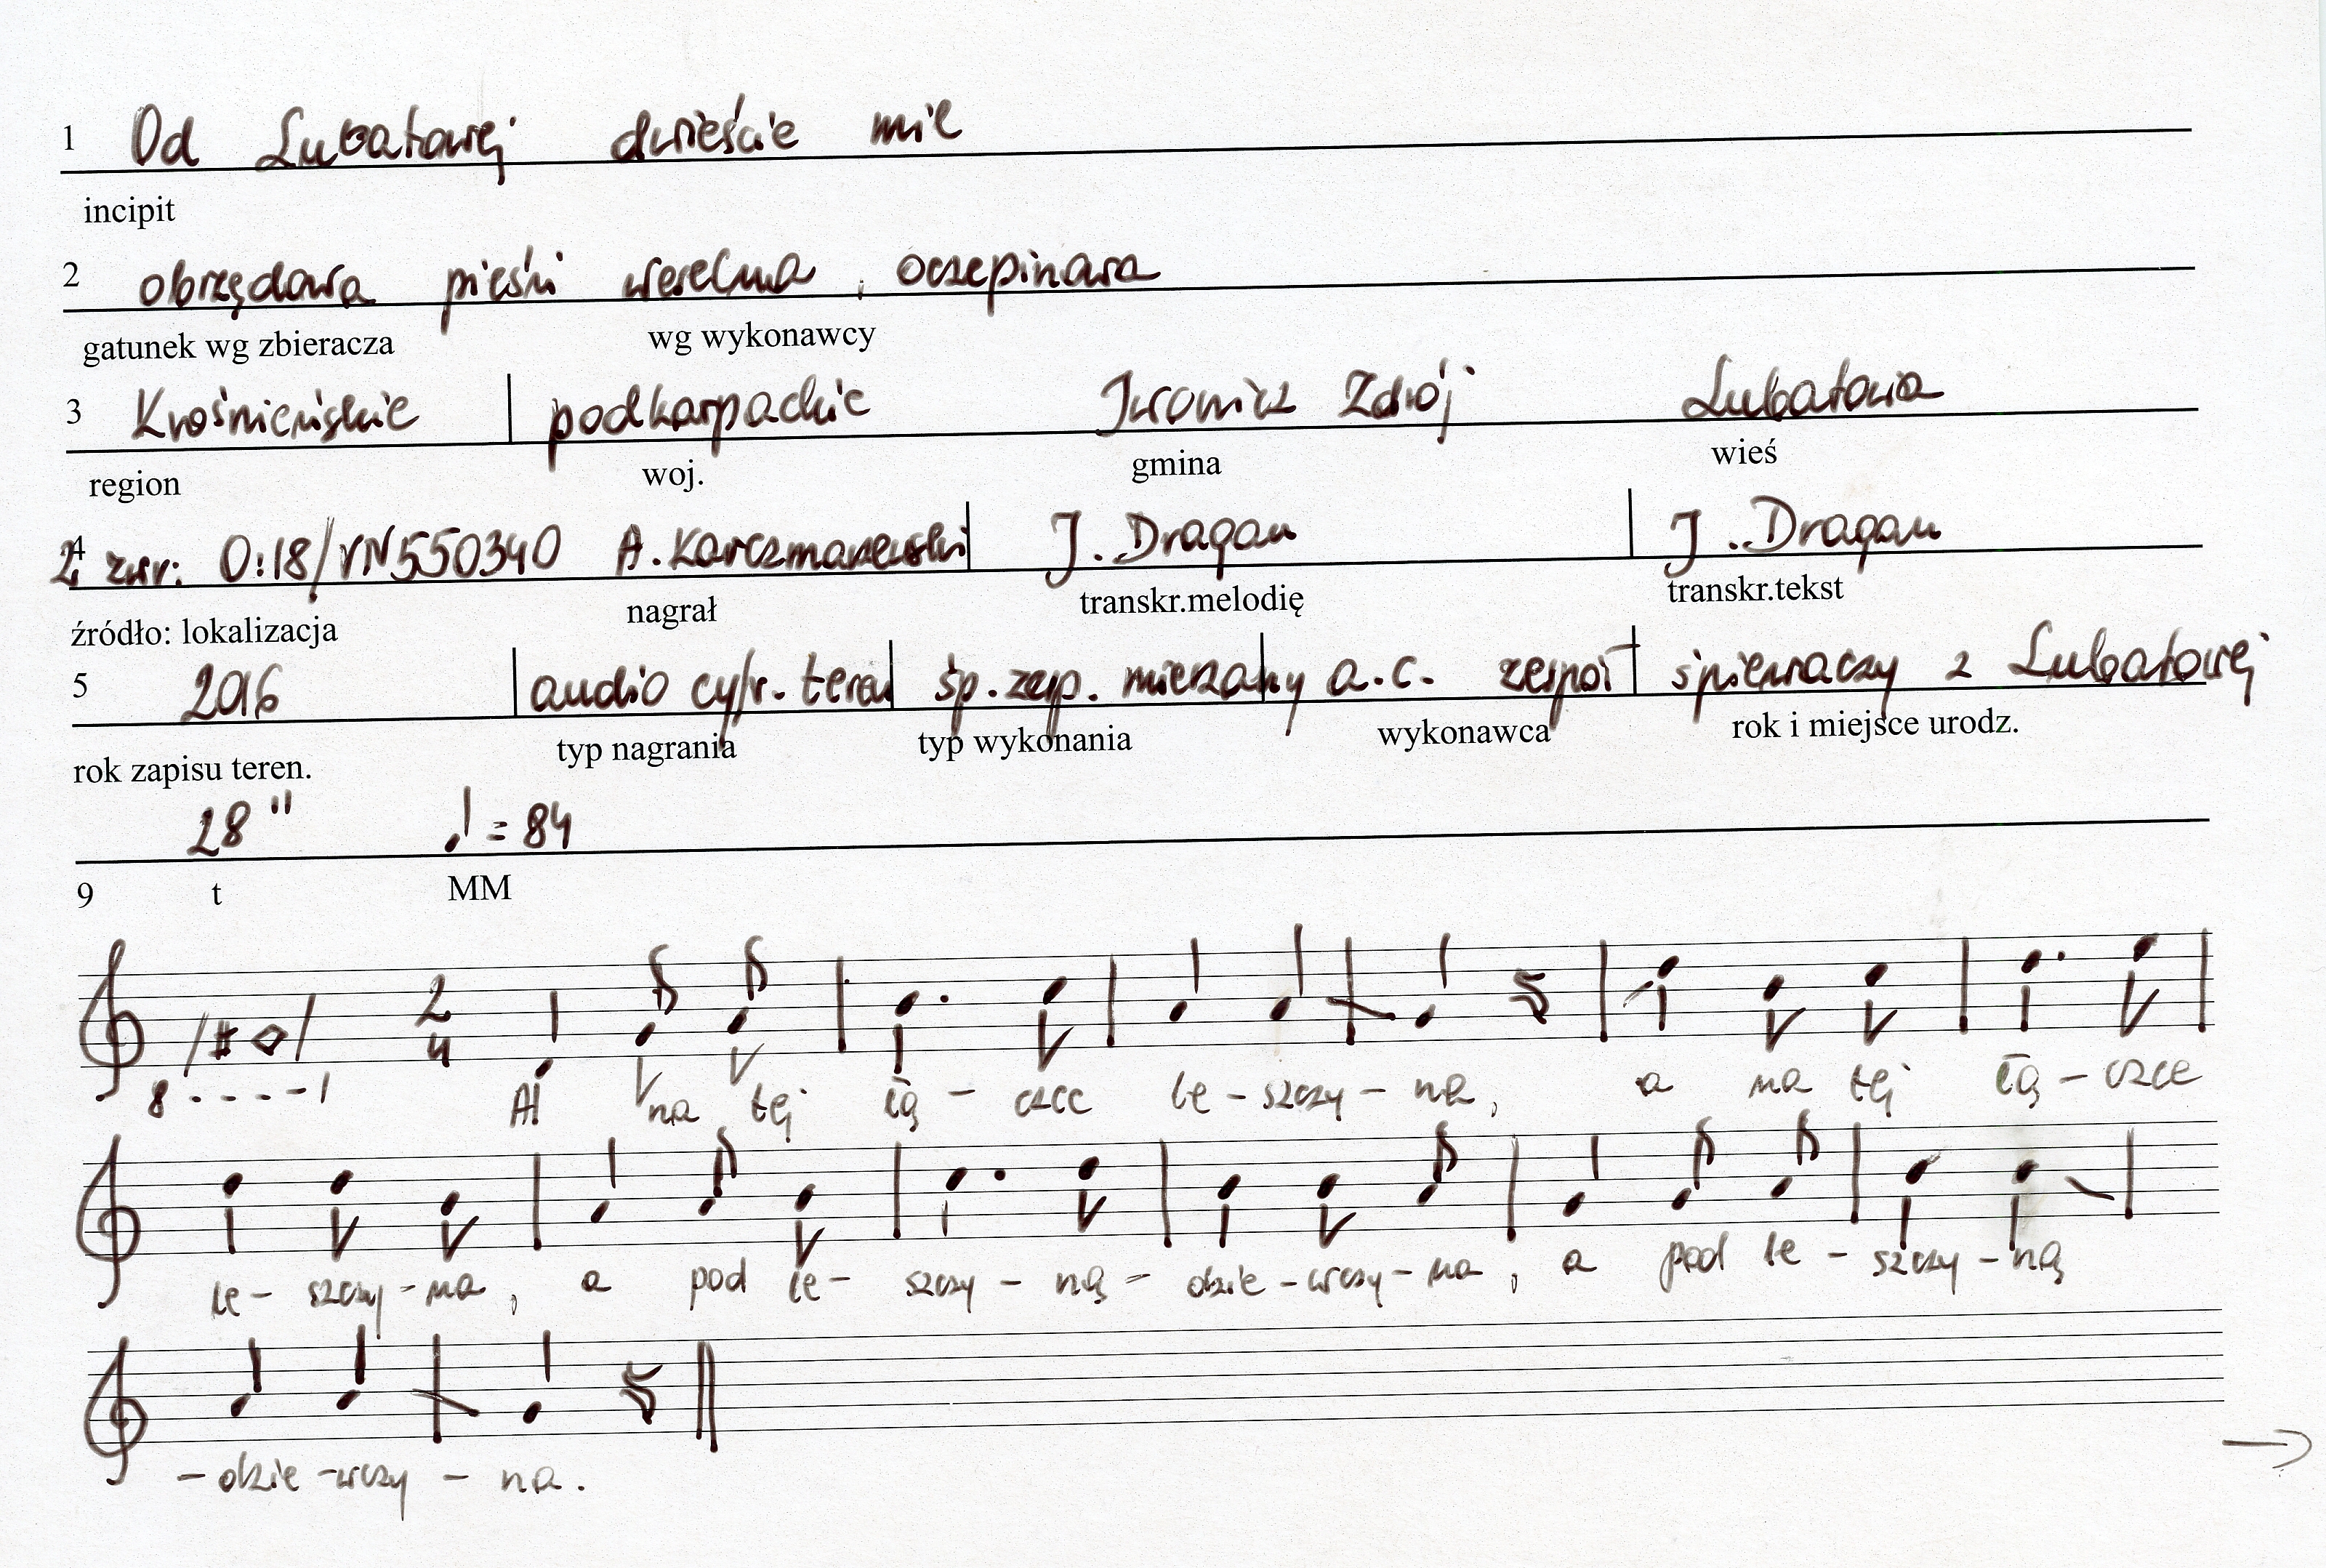 1 Od Lubatowej dwieście mil
incipit
2 obrzędowa pieśń weselna, oczepinowa
gatunek wg zbieracza wg wykonawcy
3 Krośnieńskie podkarpackie Iwonicz Zdrój Lubatowa
region woj. gmina wieś
4 2 zwr: 0:18/VN550340 A. Karczmarzewski J. Dragan J. Dragan
źródło: lokalizacja nagrał transkr.melodię transkr.tekst
5 2016 audio cyfr. teren śp. zesp. mieszany a.c. zespół śpiewaczy z Lubatowej
rok zapisu teren. typ nagrania typ wykonania wykonawca rok i miejsce urodz.
28" ♩ = 84
9 t MM
2
4
8 - - - - 1
A! na tej łą - czce le - szczy - na, a na tej łą - czce
le - szczy - na, a pod le - szczy - ną - dzie - wczy - na, a pod le - szczy - ną
- dzie - wczy - na.